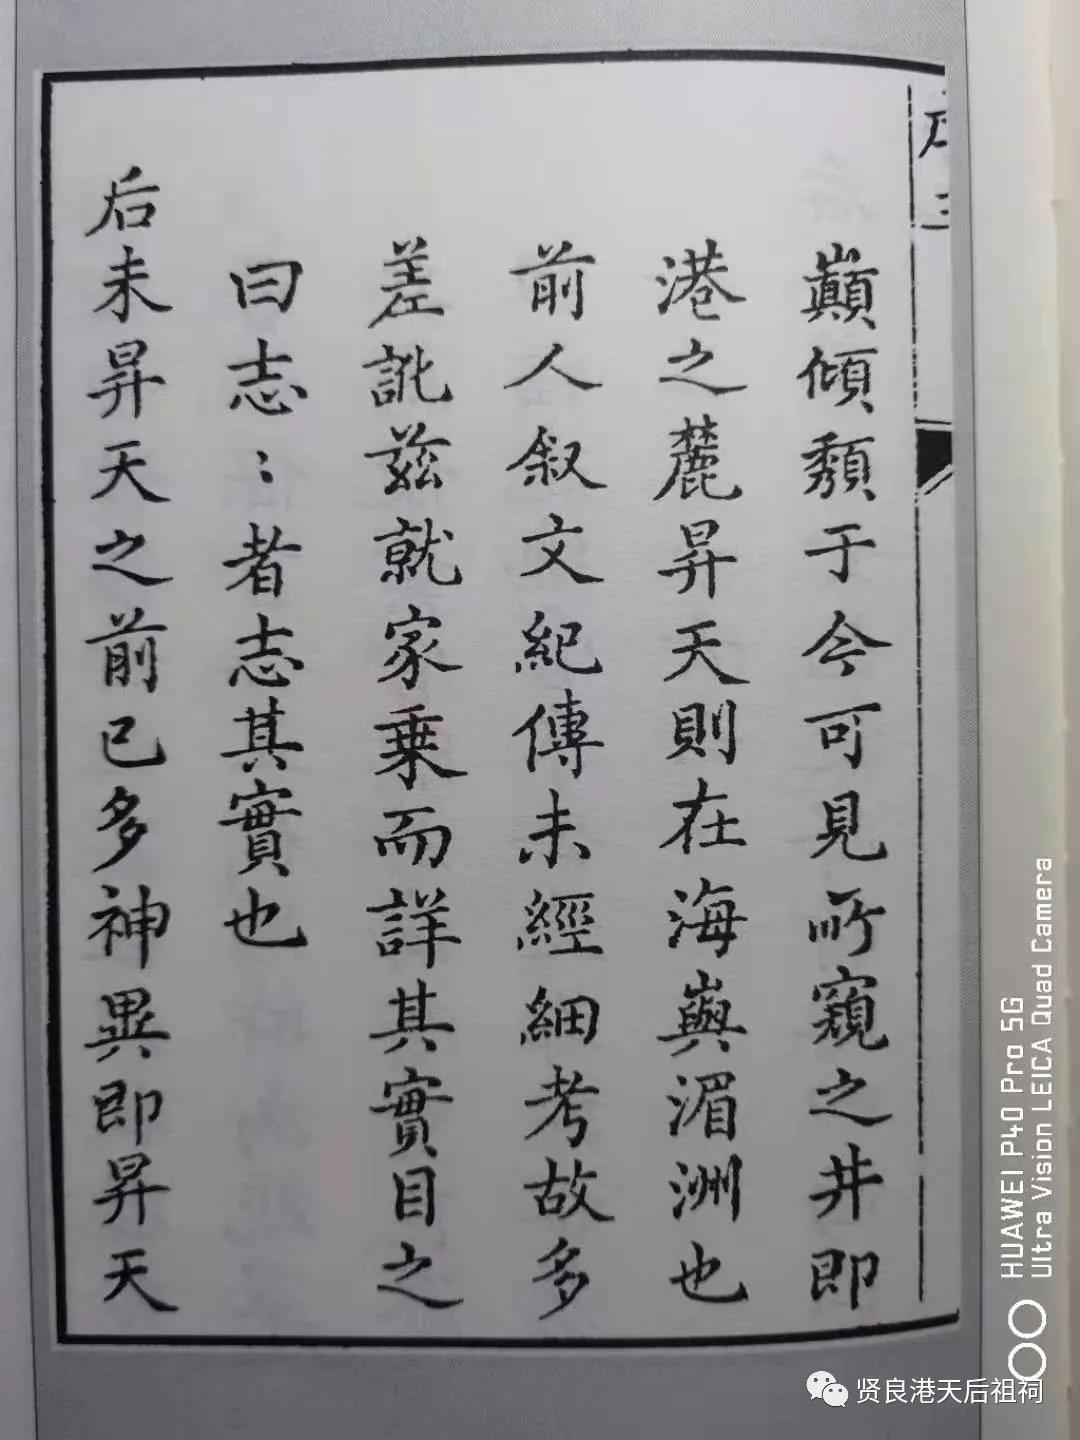 序三
巔傾頽于今可見所窺之井即
港之麓昇天則在海嶼湄洲也
前人叙文紀傳未經細考故多
差訛兹就家乗而詳其實目之
曰志：者志其實也
后未昇天之前已多神異即昇天
HUAWEI P40 Pro 5G
Ultra Vision LEICA Quad Camera
贤良港天后祖祠